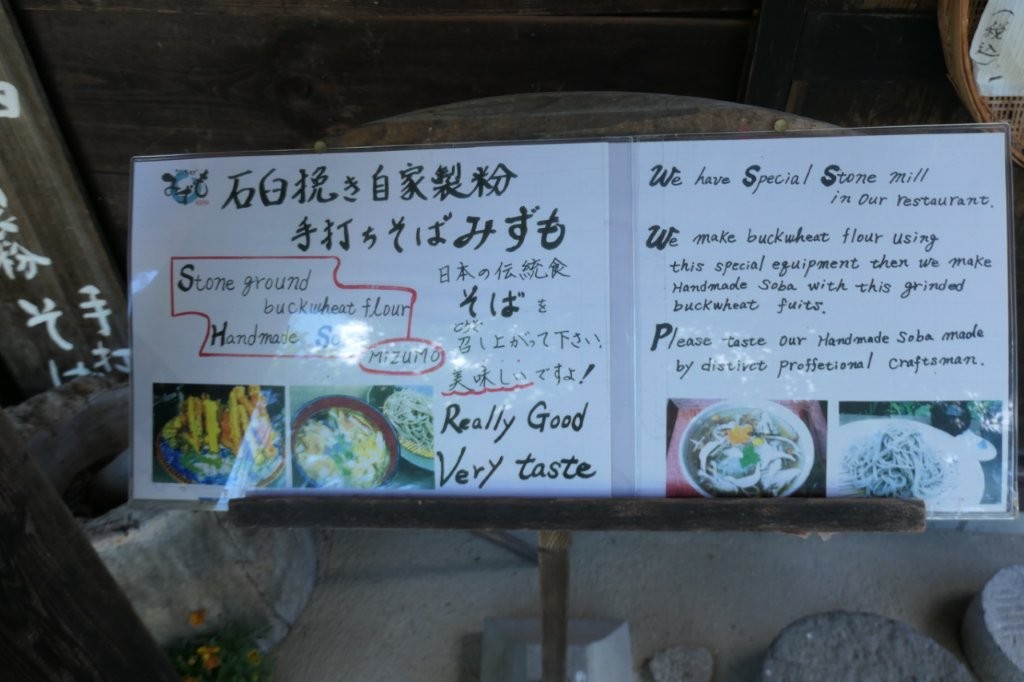 石臼挽き自家製粉
手打ちそばみずも
Stone ground
buckwheat flour
Handmade So
MiZUMO
日本の伝統食
そばを
召し上がって下さい.
美味しいですよ!
Really Good
Very taste
We have Special Stone mill
in Our restaurant.
We make buckwheat flour using
this special equipment then we make
Handmade Soba with this grinded
buckwheat fuits.
Please taste Our Handmade Soba made
by distivct Proffetional Craftsman.
(税込)
粉
そ
手打